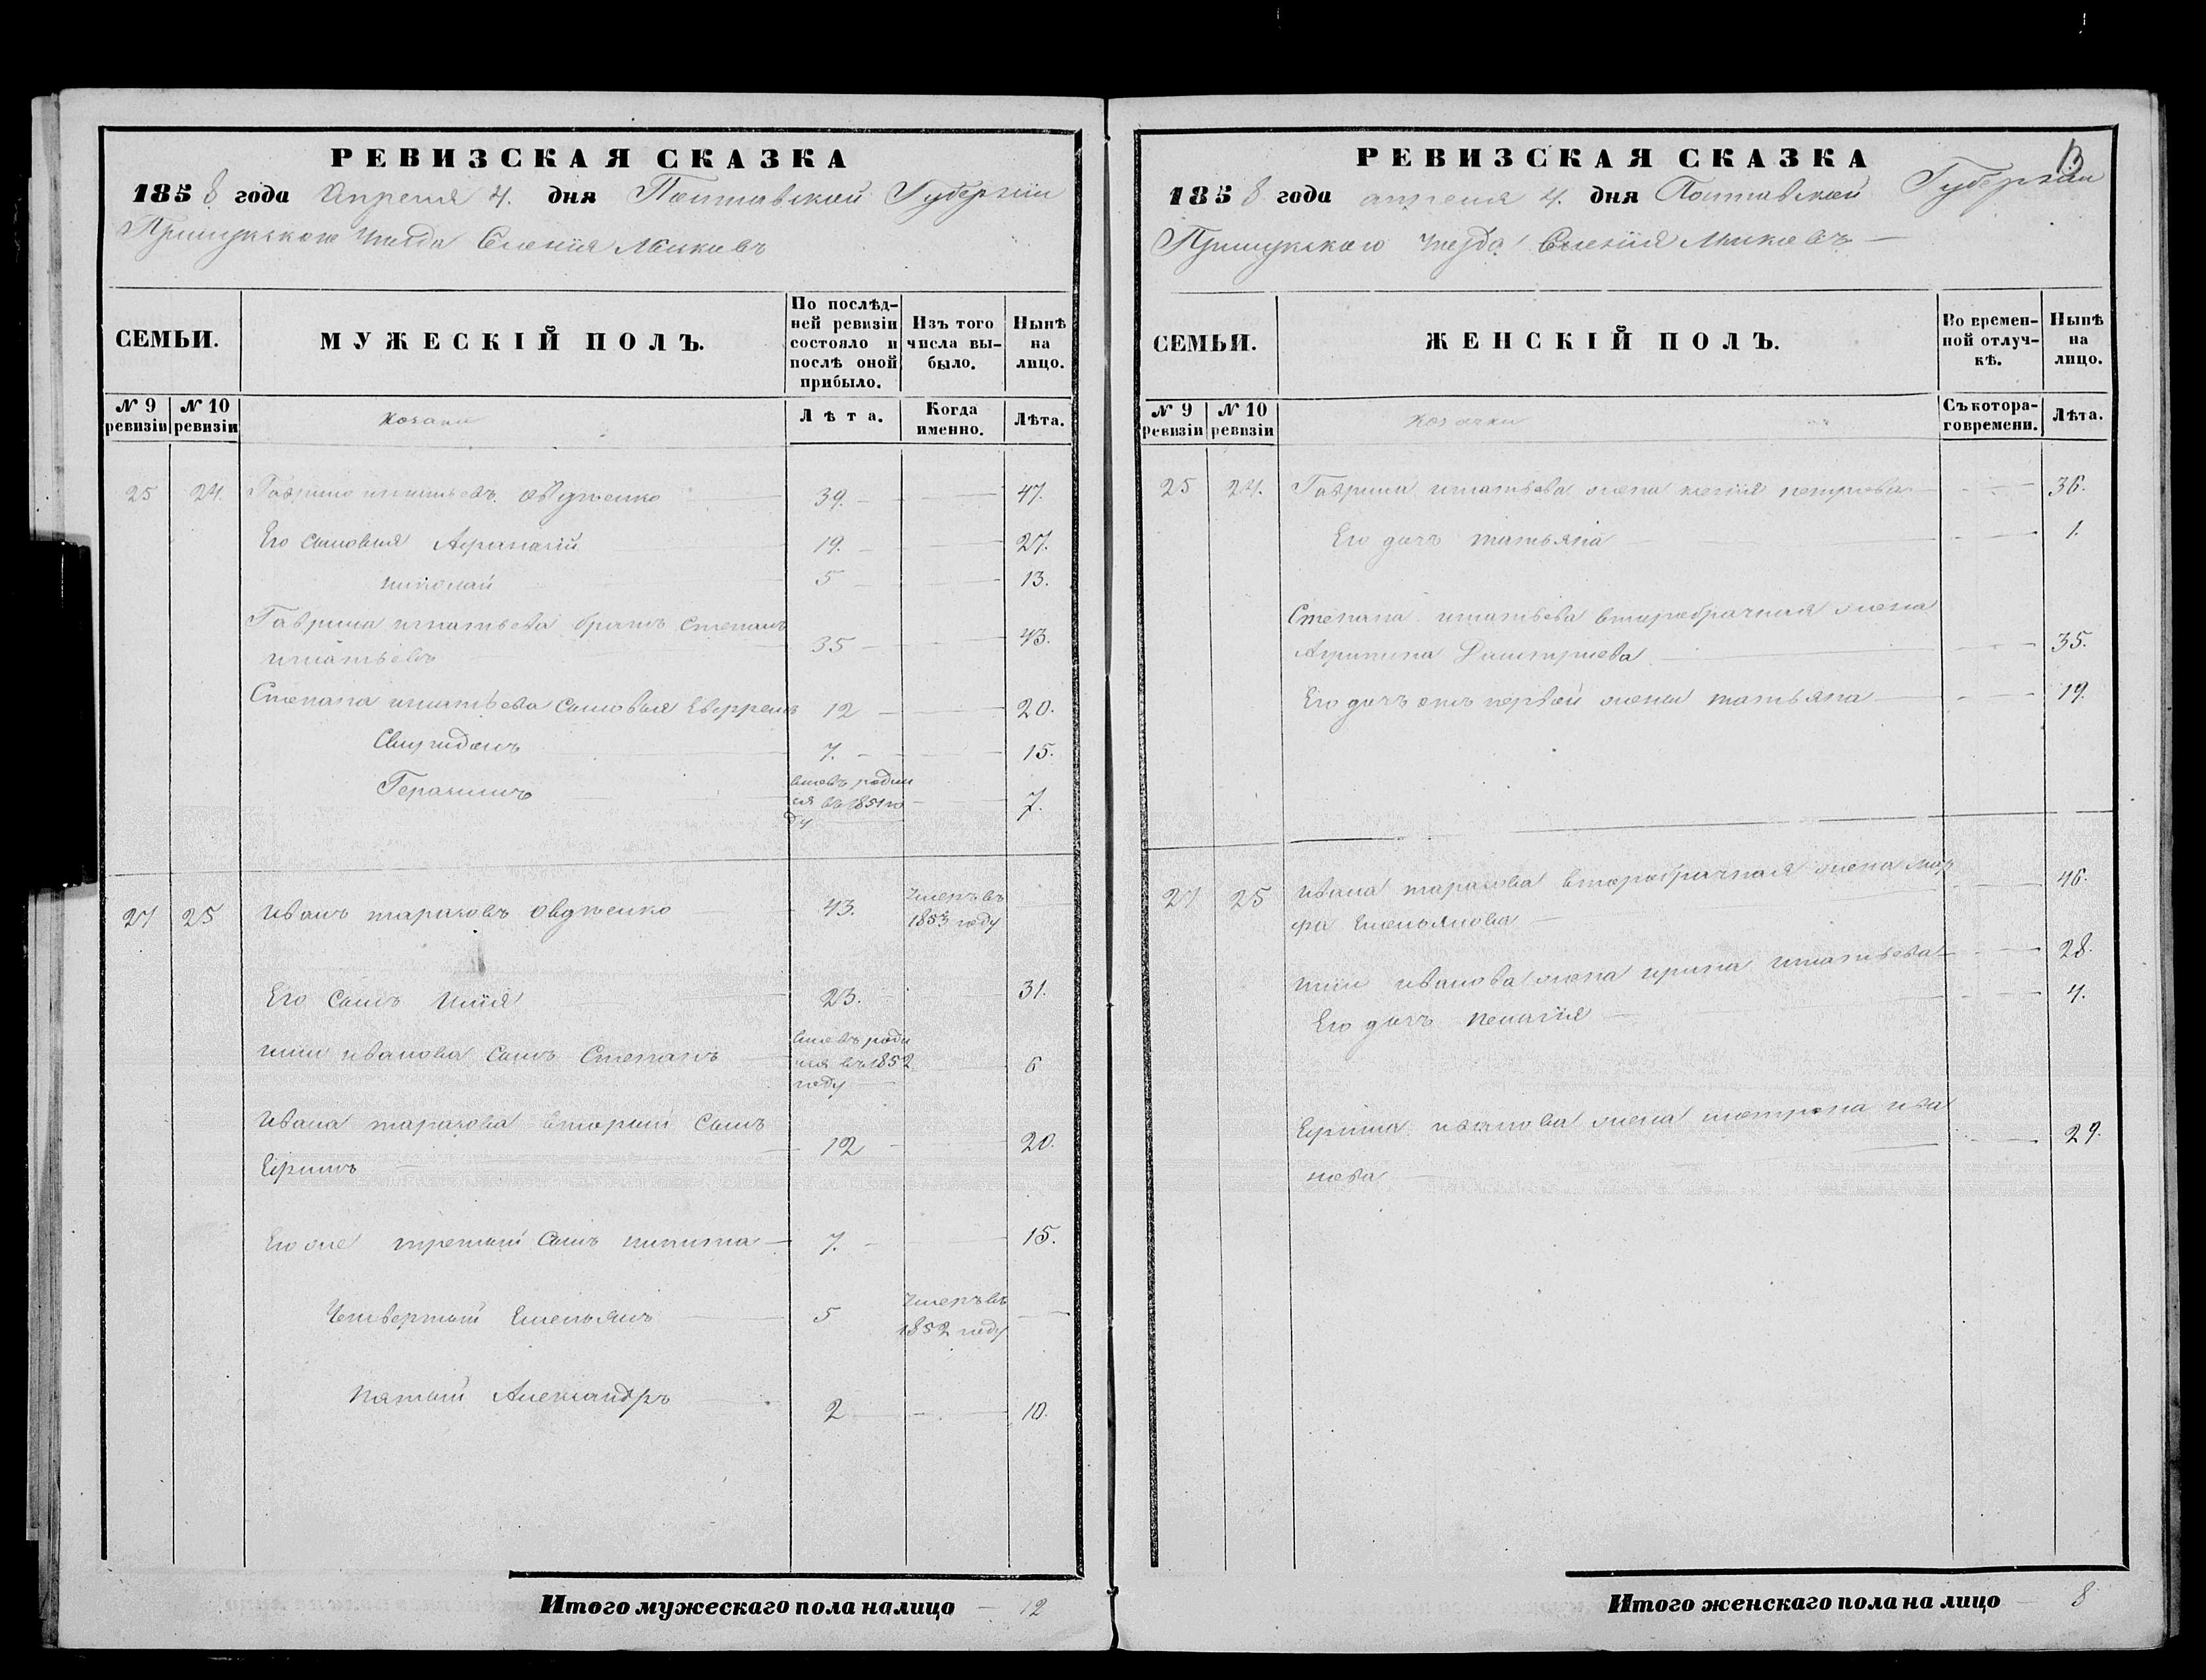 РЕВИЗСКАЯ СКАЗКА
1858 года Апреля 4. дня Полтавской Губерніи
Прилукского уезда Селенія Мокіевъ
СЕМЬИ.
МУЖЕСКІЙ ПОЛЪ.
По послѣд-
ней ревизіи
состояло и
послѣ оной
прибыло.
Изъ того
числа вы-
было.
Нынѣ
на
лицо.
№ 9 ревизіи
№ 10 ревизіи
Козаки
Лѣта.
Когда именно.
Лѣта.
25 24. Гаврило игнатьевъ Овдѣенко 39. 47.
Его сыновья Афанасій 19. 27.
николай 5 13.
Гаврила игнатьева братъ Степанъ
игнатьевъ 35 43.
Степана игнатьева сыновья Евфремъ 12 20.
Свиридонъ 7. 15.
Герасимъ 7.
вновь роди
ся въ 1851 го
ду
27 25 иванъ тарасовъ Овдѣенко 43.
Умеръ въ
1853 году
Его сынъ илія 23. 31.
иліи иванова сынъ Степанъ 6
вновь роди
ся въ 1852
году
ивана тарасова вторый сынъ
Ефимъ 12 20.
Его же третый сынъ никита 7. 15.
Четвертый Емельянъ 5
Умеръ въ
1852 году
пятый Александръ 2 10.
Итого мужескаго пола налицо 12
13
РЕВИЗСКАЯ СКАЗКА
1858 года апреля 4. дня Полтавской Губерніи
Прилукского уезда Селенія Мокіевъ
СЕМЬИ.
ЖЕНСКІЙ ПОЛЪ.
Во времен-
ной отлуч-
кѣ.
Нынѣ
на
лицо.
№ 9 ревизіи
№ 10 ревизіи
Козачки
Съ котора-
го времени.
Лѣта.
25 24. Гаврила игнатьева жена ксенія петрова 36.
Его дочь татьяна 1.
Степана игнатьева второбрачная жена
Агрипина Димитриева 35.
Его дочь отъ первой жены татьяна 19.
27 25 ивана тарасова второбрачная жена мар
фа Емельянова 46.
иліи иванова жена ирина игнатьева 28.
Его дочь пелагія 4.
Ефима иванова жена мотрона ива
нова 29.
Итого женскаго пола на лицо 8